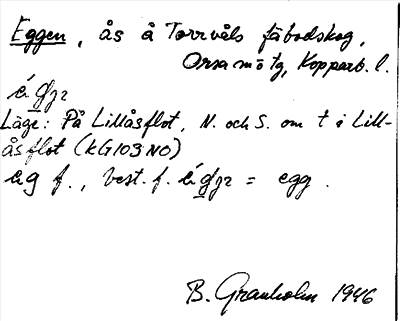 Eggen, ås å Torrvåls fäbodskog,
Orsa mötg, Kopparb. l.
Läge: På Lillåsflot, N. och S. om t i Lill-
åsflot (KG103NO)
f., best. f. = egg.
B. Granholm 1946